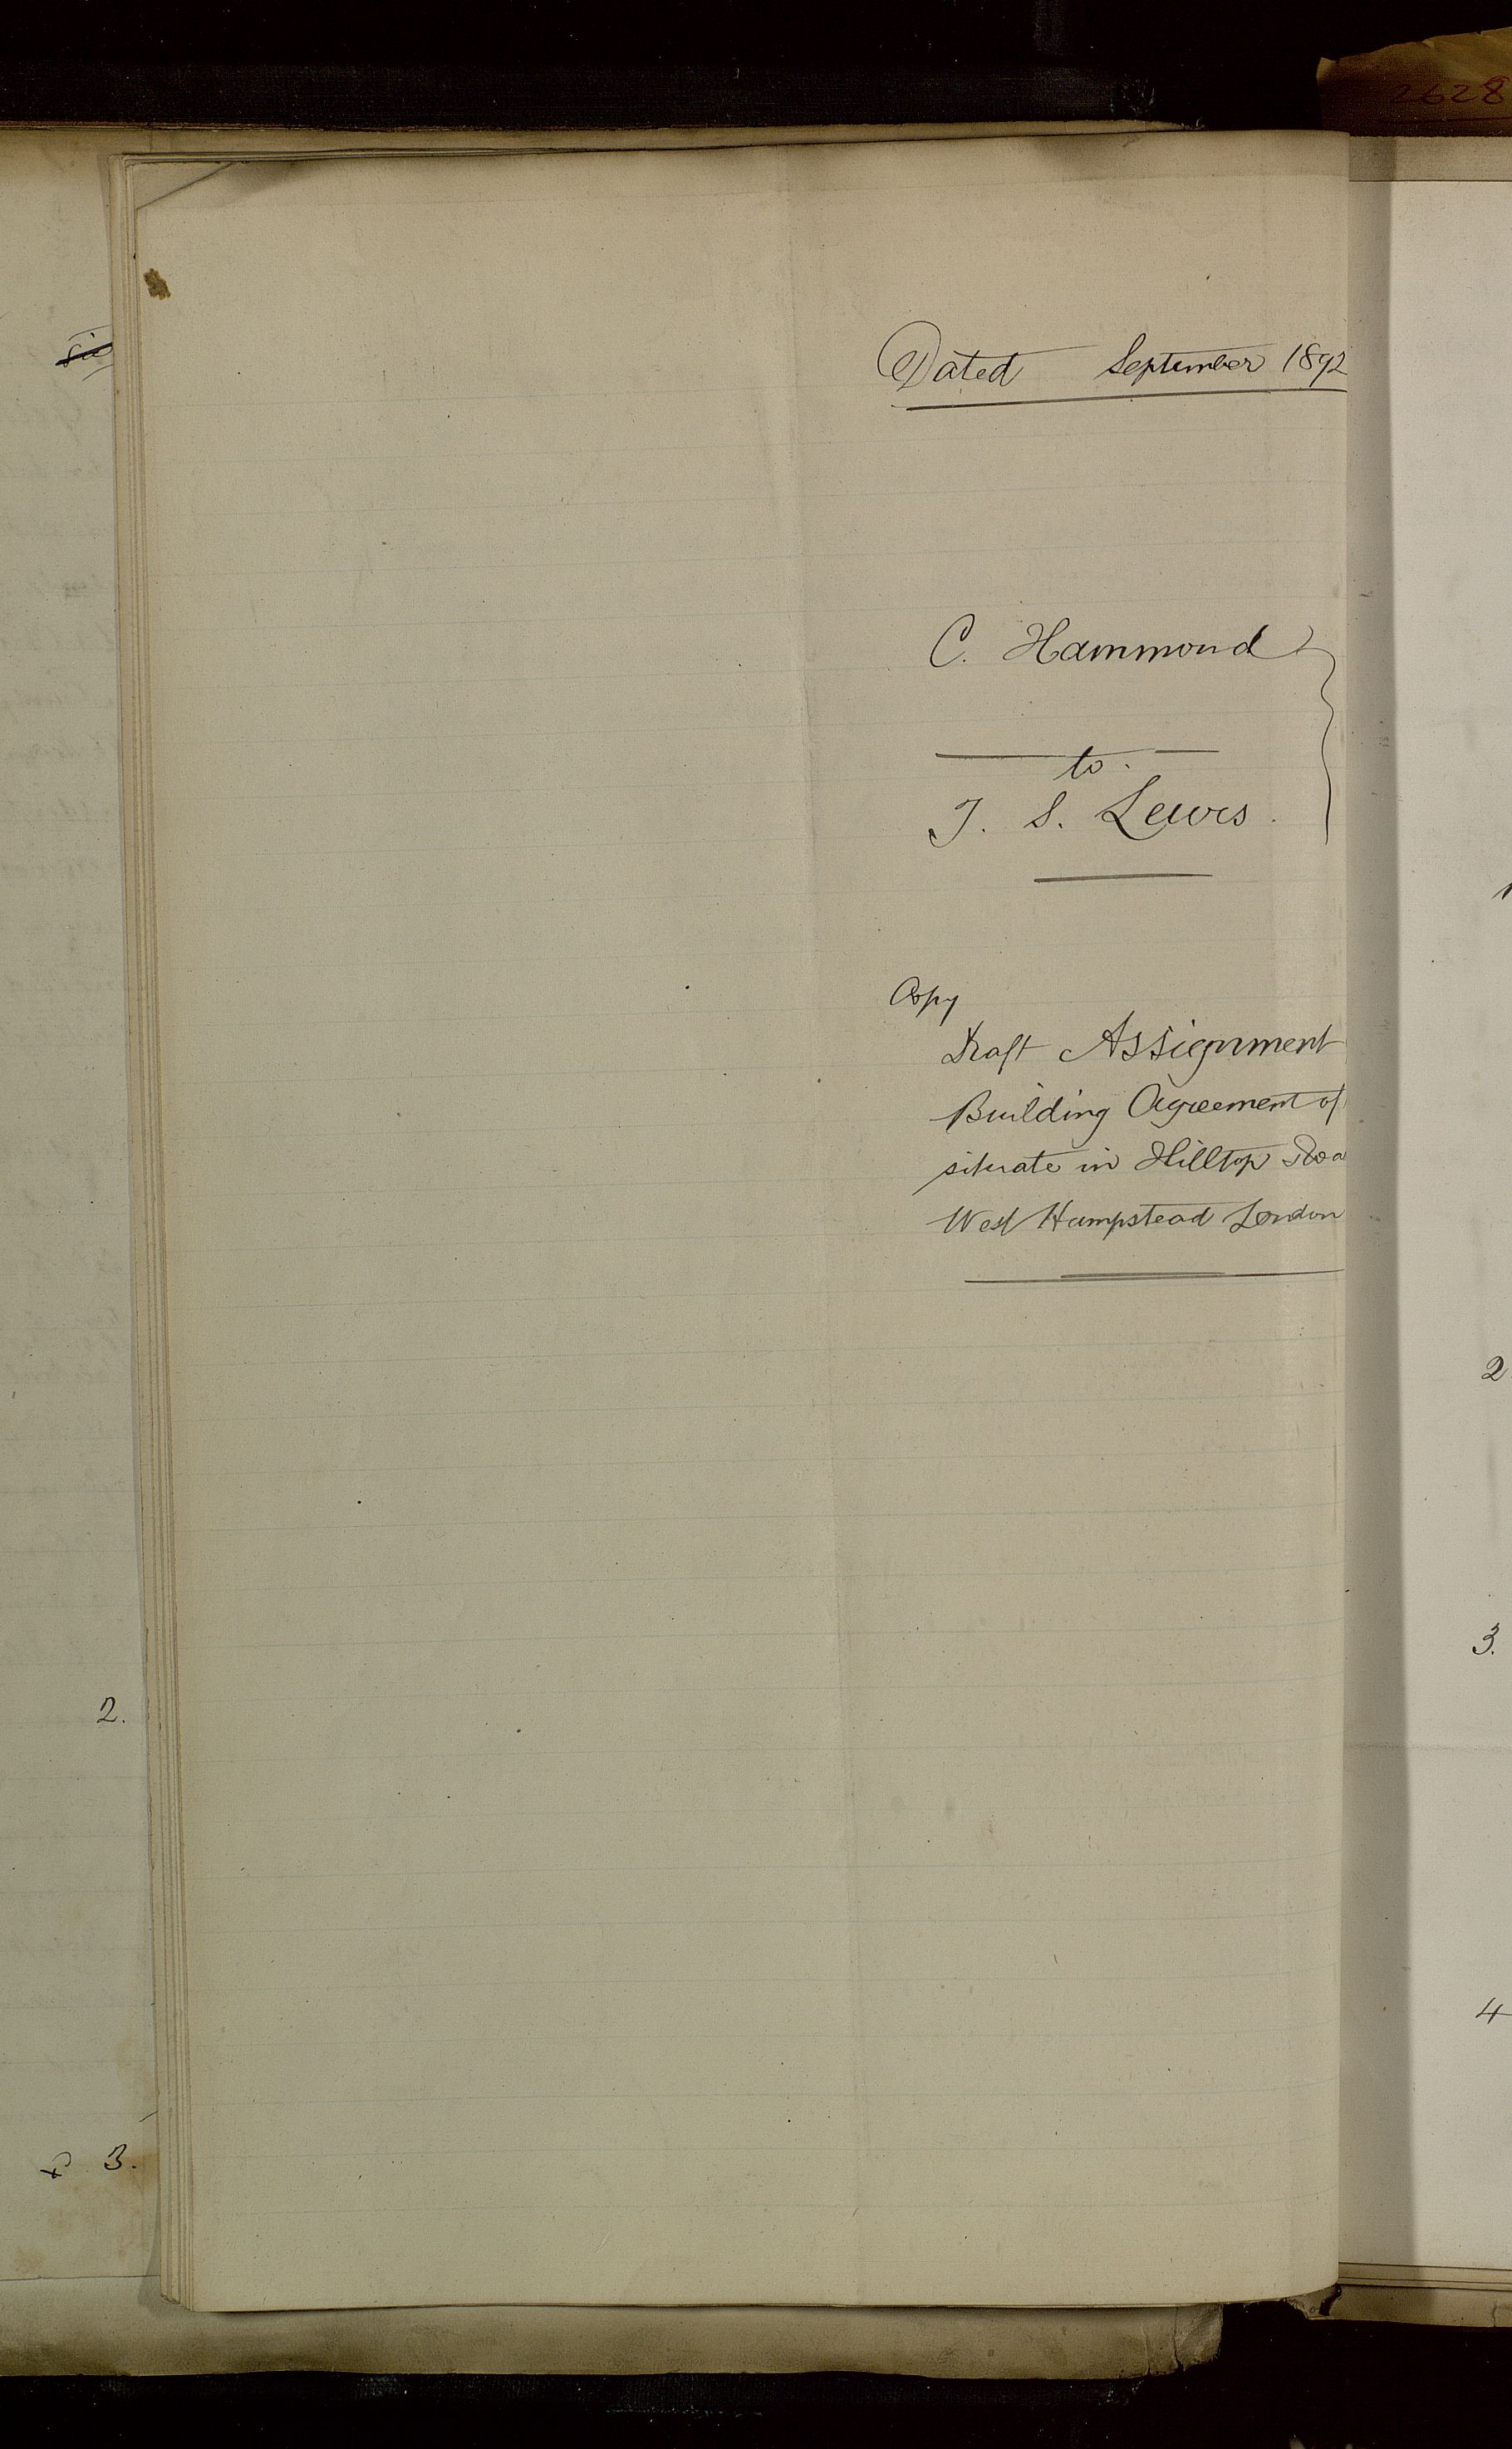 2628
Dated September 1892
C. Hammond
to
J. S. Lewis.
Copy
Draft Assignment
Building Agreement of
situate in Hilltop Roa
West Hampstead London
2.
3.
2
3.
4